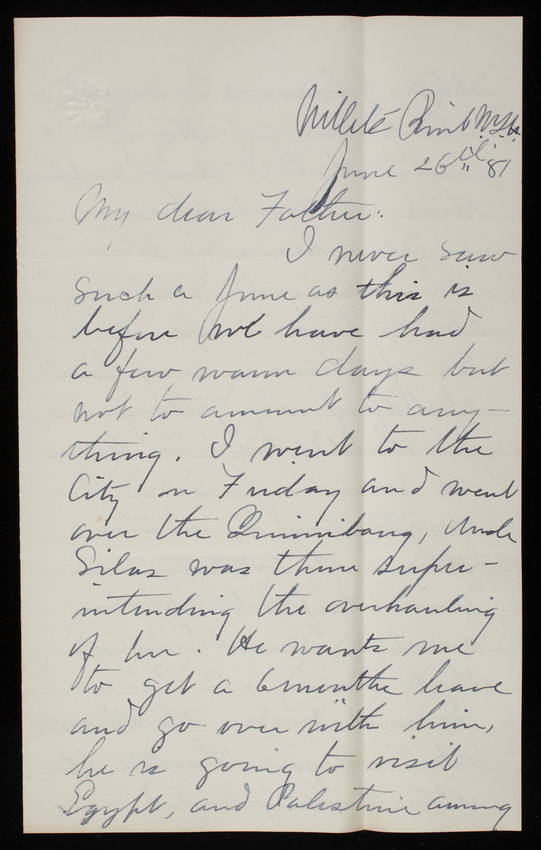 Willets Point N.Y.H.
June 26th '81
My dear Father:
I never saw
such a June as this is
before we have had
a few warm days but
not to amount to any-
thing. I went to the
City on Friday and went
over the Quinnibaug, Uncle
Silas was there super-
intending the overhauling
of her. He wants me
to get a 6 months leave
and go over with him,
he is going to visit
Egypt, and Palestine among